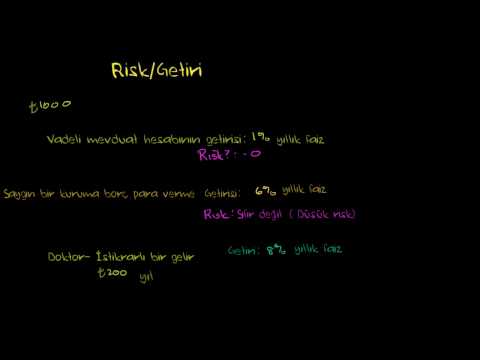 Risk/Getiri
₺1000
Vadeli mevduat hesabının getirisi: 1% yıllık faiz
Risk?: ~0
Saygın bir kuruma borç para verme Getirisi: 6% yıllık faiz
Risk: Sıfır değil (Düşük risk)
Doktor- İstikrarlı bir gelir Getiri: 8% yıllık faiz
₺200 yıl